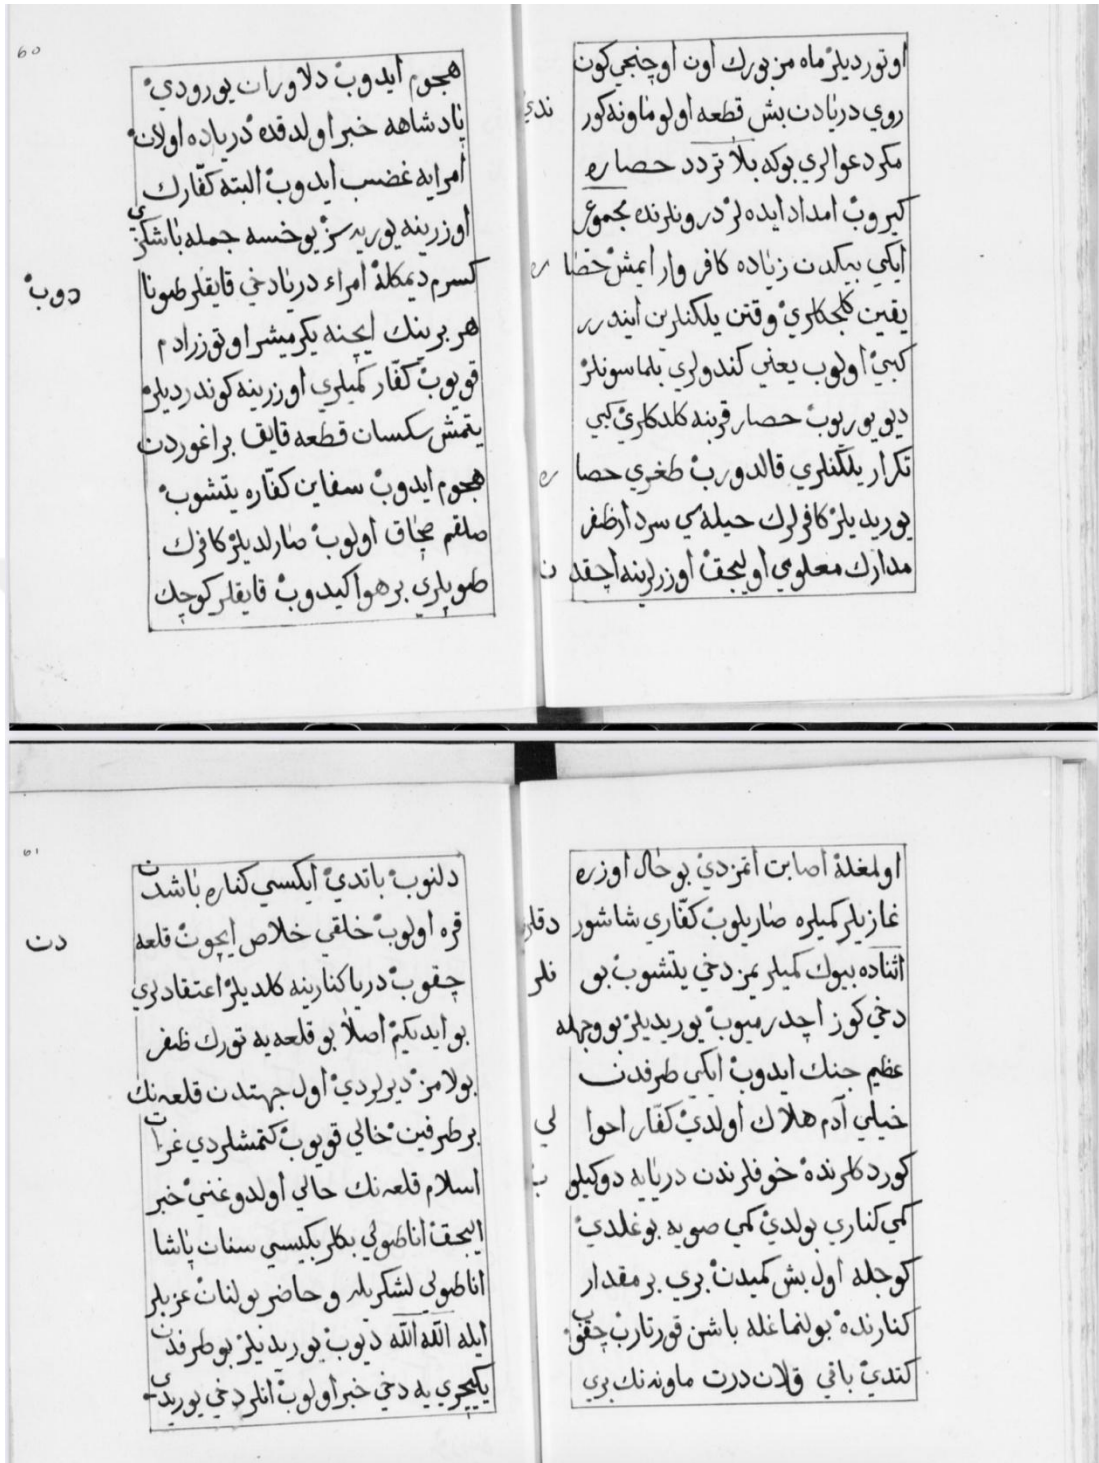 اوتورديلر ماه مزبورك اون اوچنجي كون
روي دريادن بش قطعه اولو ماونه كور ندي
مكر دعوالري بوكه بلا تردد حصاره
كيروب امداد ايده لر درونلرنده مجموع
ايكي بيكدن زياده كافر وار ايمش حصاره
يقين كلجكلري وقتن يلكنلرين ايندرر
كبي اولوب يعني كندولري بلماسونلر
ديو يوريوب حصار قربنه كلدكلري كبي
تكرار يلكنلري قالدورب طغري حصاره
يوريديلر كافرلرك حيله سي سردار ظفر
مدارك معلومي اوليجق اوزرلرينه اچقدن
60
هجوم ايدوب دلاوران يورودي
پادشاهه خبر اولدقده درياده اولان
امرايه غضب ايدوب البته كفارك
اوزرينه يوريه سز يوخسه جمله باشكزي
كسرم ديمكله امراء دريا دخي قايقلر طونادوب
هر برينك ايچنه يكرميشر اوتوزر ادم
قويوب كفار كميلري اوزرينه كوندرديلر
يتمش سكسان قطعه قايق براغوردن
هجوم ايدوب سفاين كفاره يتشوب
صلقم صچاق اولوب صارلديلر كافرك
طوپلري بر هوا كيدوب قايقلر كوچك
اولمغله اصابت اتمزدي بو حال اوزره
غازيلر كميلره صاريلوب كفاري شاشوردقلري
اثناده بيوك كميلريمز دخي يتشوب بونلر
دخي كوز اچدرميوب يوريديلر بو وجهله
عظيم جنك ايدوب ايكي طرفدن
خيلي آدم هلاك اولدي كفار احوالي
كوردكلرنده خوفلرندن دريايه دوكيلوب
كمي كناري بولدي كمي صويه بوغلدي
كوجله اول بش كميدن بري بر مقدار
كنارنده بولنماغله باشن قورتارب چقوب
كتدي باقي قلان درت ماونه نك بري
61
دلنوب باتدي ايكسي كناره باشدن
قره اولوب خلقي خلاص ايچون قلعه دن
چقوب دريا كنارينه كلديلر اعتقادلري
بو ايديكيم اصلا بو قلعه يه تورك ظفر
بولامز ديرلردي اول جهتدن قلعه نك
بر طرفين خالي قويوب كتمشلردي غزات
اسلام قلعه نك خالي اولدوغني خبر
اليجق اناطولي بكلربكيسي سنان پاشا
اناطولي لشكريله و حاضر بولنان عزبلر
ايله الله الله ديوب يوريديلر بو طرفدن
يكيچري يه دخي خبر اولوب انلر دخي يوريدي